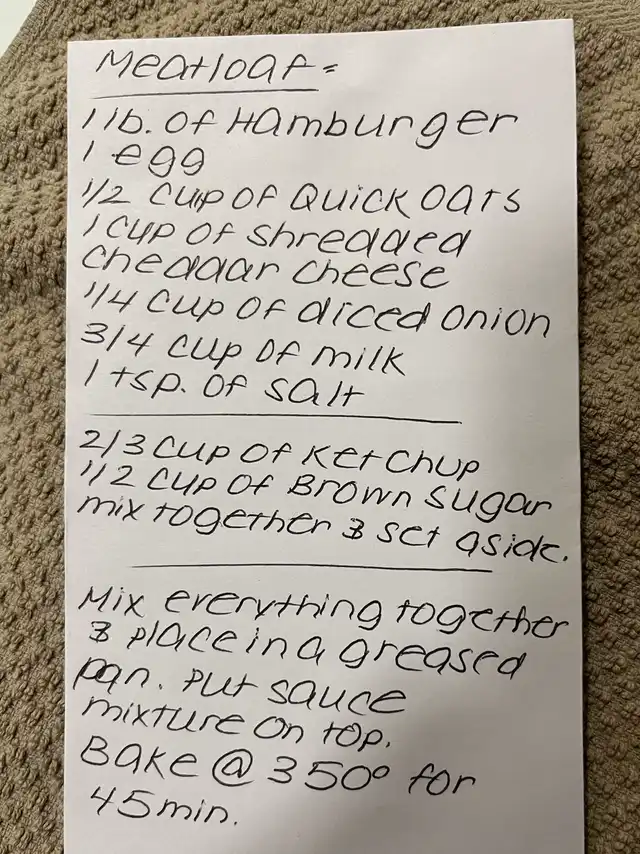 Meatloaf=
1 lb. of Hamburger
1 egg
1/2 cup of Quick oats
1 cup of shredded
cheddar cheese
1/4 cup of diced onion
3/4 cup of milk
1 tsp. of salt
2/3 cup of Ketchup
1/2 cup of Brown sugar
mix together & set aside.
Mix everything together
& place in a greased
pan. Put sauce
mixture on top.
Bake @ 350° for
45 min.